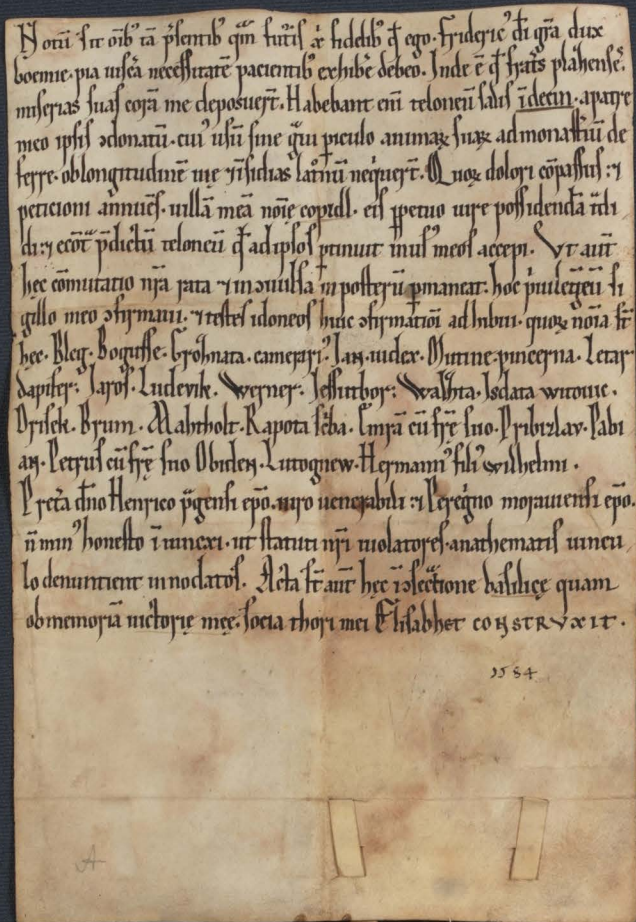 Notū sit oīb' tā p̄sentib' q̄m futꝰis x̄ fidelib' q̄d ego. Frideric' dī gr̄a dux
boemie. pia viscā necessitatē pacientib' exhibē debeo. Inde ē q̄ fr̄atꝰs plahensē.
miserias suas corā me deposuerꝰt. Habebant enī teloneū salis ī decin. a patre
meo ipsis ꝯdonatū. cui' usū sine q̄ui piculo animaꝝ suaꝝ ad monastiū de
ferre. ob longitudinē vie ⁊ īsidias latꝰnū neq̇verꝰt. Quoꝝ dolori cōpassus: ⁊
peticioni annuēs. villā meā noīe copidl. eis ꝑpetuo iure possidendā tꝰdi
di: ⁊ ecōtꝰ p̄dictū teloneū q̄d ad ipsos ꝑtinuit in us' meos accepi. Vt aūt
hęc cōmutatio nr̄a rata ⁊ inꝯvulsa in posterū ꝑmaneat. hoc p̄vilegiū si
gillo meo ꝯfirmavi. ⁊ testes idoneos huic ꝯfirmatiōi adhibui. quoꝝ noīa s̄t
hęc. Bleg. Bogusse. Grohnata. camerari'. Jan. iudex. Mutine. pincerna. Letar
dapifer. Jaros. Ludevik. Werner. Jessutbor. Walkhta. Isdata witovic.
Drisek. Brum. Mahtholt. Rapota sc̄ba. Cmrā cū fr̄e suo. Pribizlav. Pabi
an. Petrus cū fr̄e suo Obiden. Lutognew. Hermann' fili' wilhelmi.
Pret̄ea dn̄o Henrico p̄gensi ep̄o. viro venerabili ⁊ Peregrino moraviensi ep̄o.
n̄ min' honesto īiunxi. ut statuti nr̄i violatores. anathematis vincu
lo denuntient innodatos. Acta s̄t aūt hęc ī ꝯsecꝰtione basilicę quam
ob memoriā victorię męe. socia thori mei Elisabhet CONSTRUXIT.
1184
A